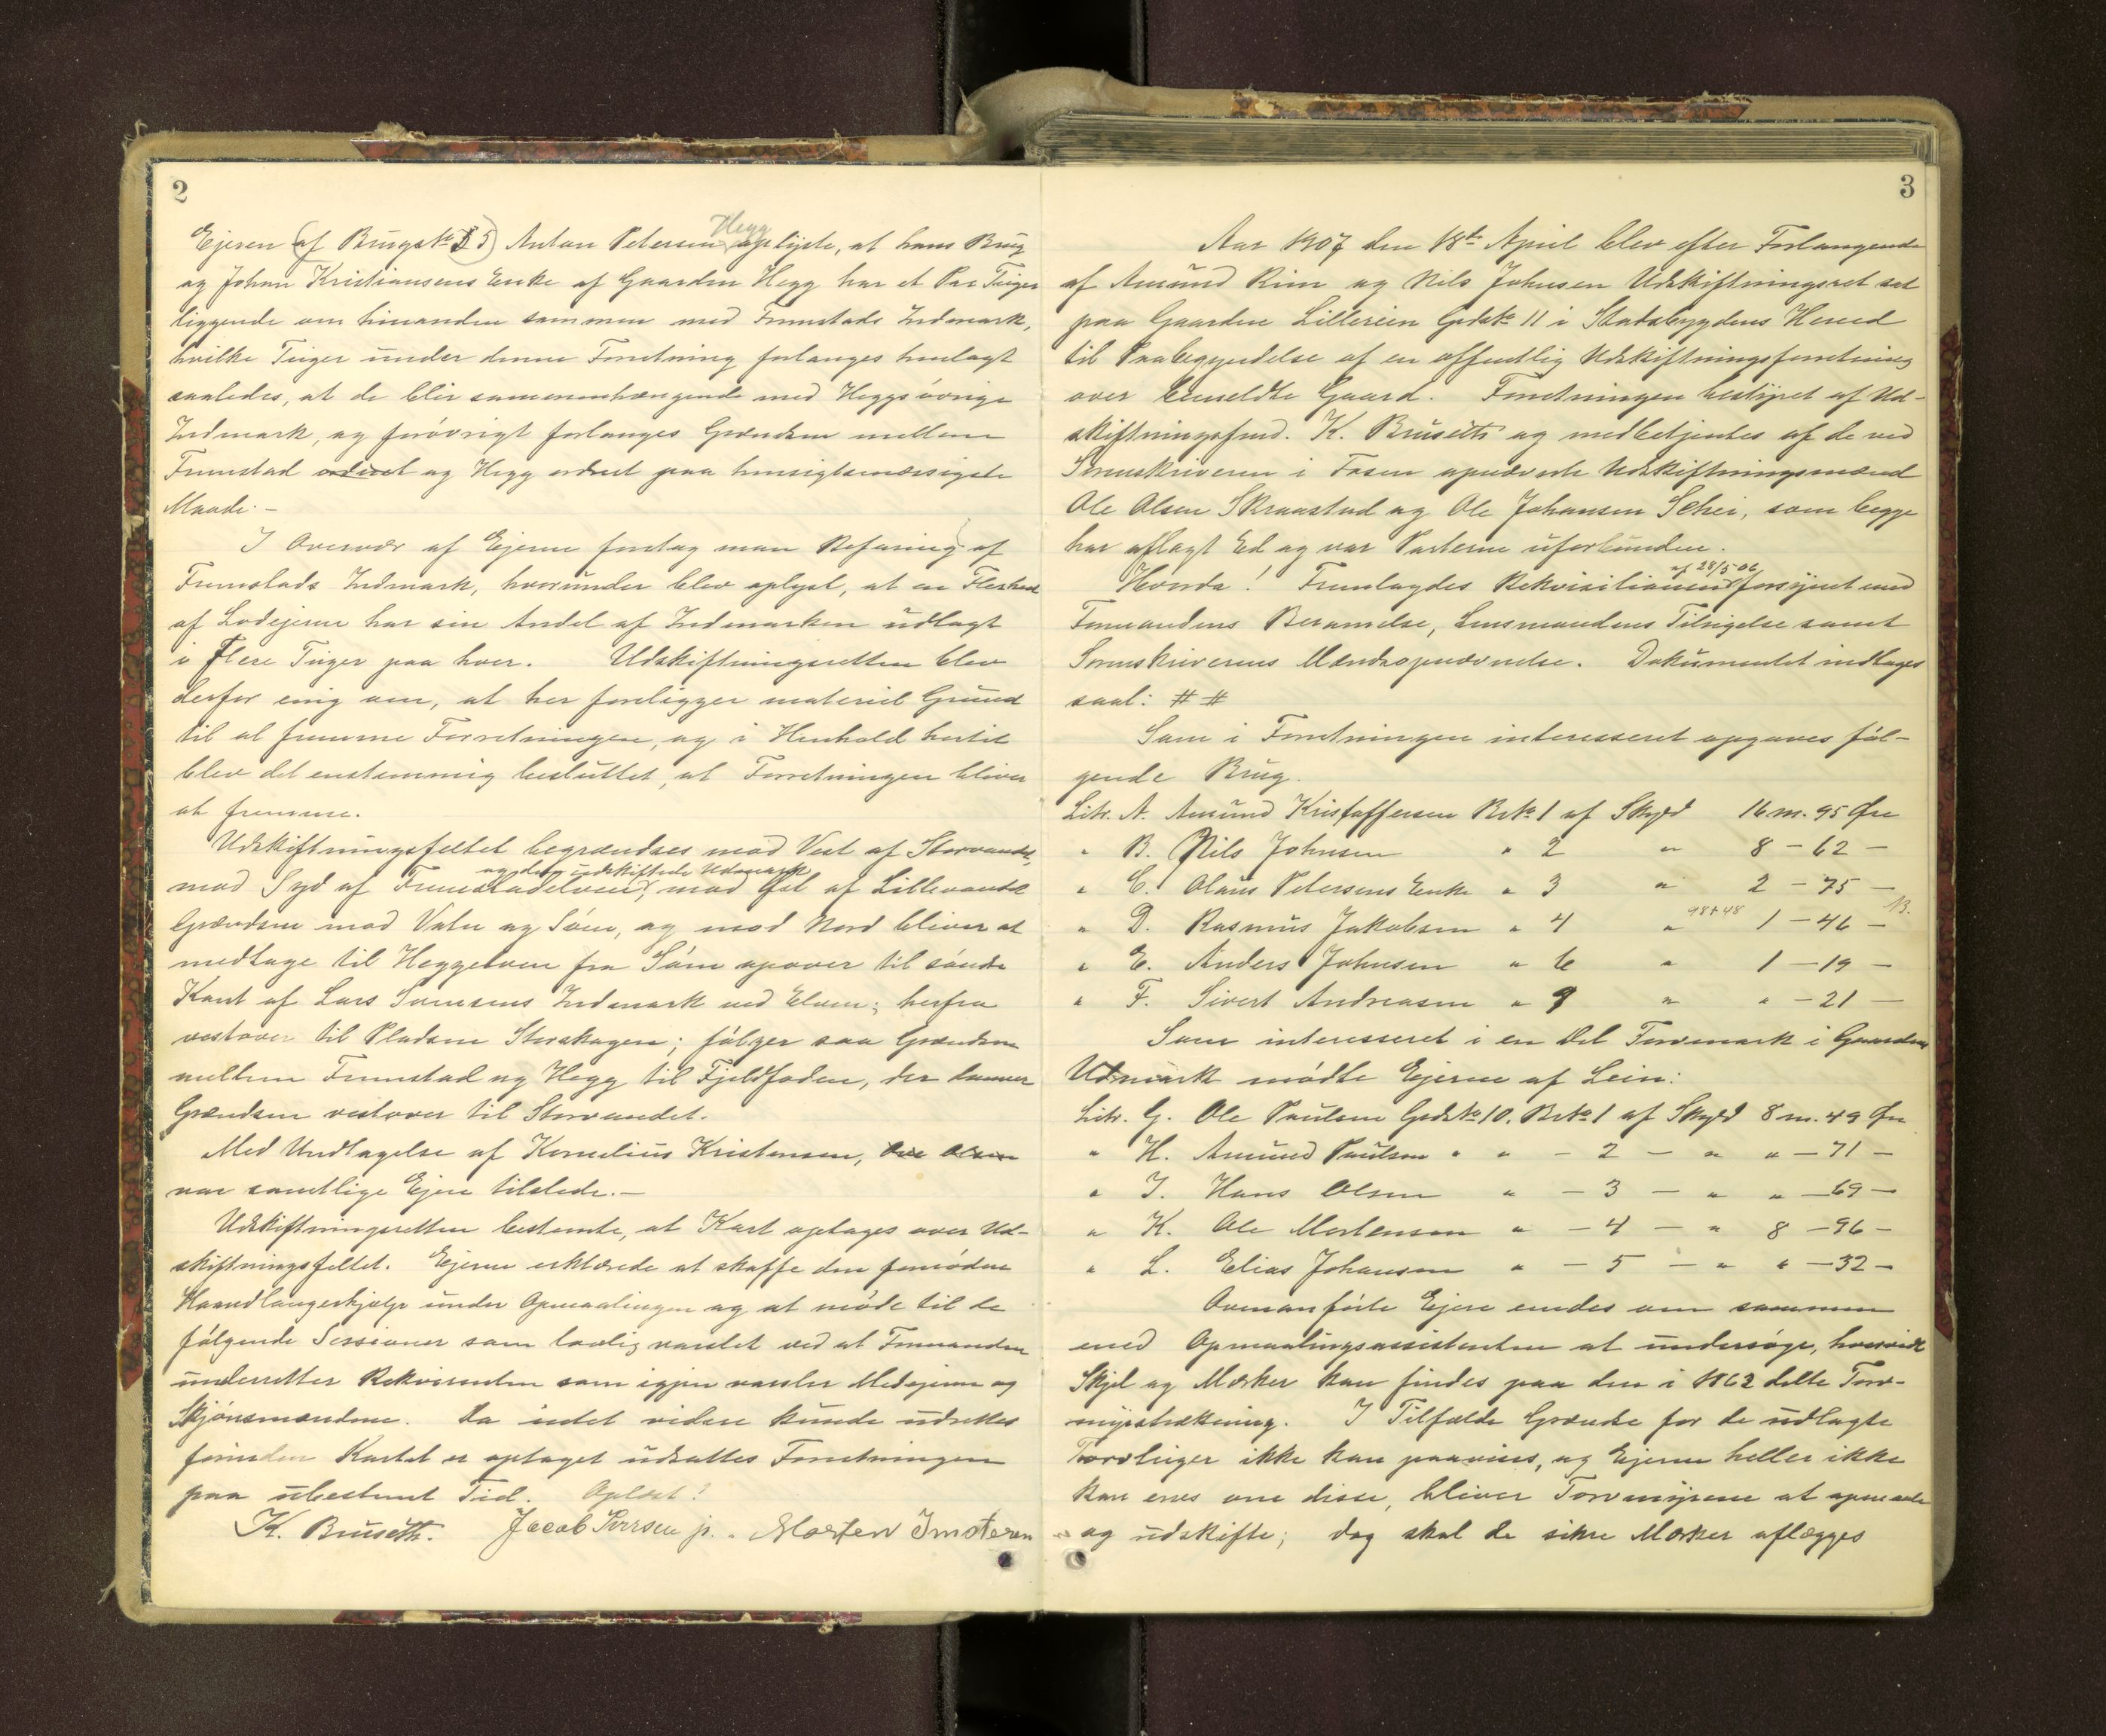 2
Hegg
Ejeren (af Brugsno 5) Anton Petersen oplyste, at hans Brug
og Johan Kristiansens Enke af Gaarden Hegg har et Par Teiger
liggende om hinanden sammen med Fremstads Indmark,
hvilke Teiger under denne Forretning forlanges henlagt
saaledes, at de blir sammenhængende med Heggs øvrige
Indmark, og forøvrigt forlanges Grændsen mellem
Fremstad ordnet og Hegg ordnet paa hensigtsmæssigste
Maade.-
I Overvær af Ejerne foretog man Befaring af
Fremstads Indmark, hvorunder blev oplyst, at en Flerhed
af Lodejerne har sin Andel af Indmarken udlagt
i flere Teiger paa hver. Udskiftningsretten blev
derfor enig om, at her foreligger materiel Grund
til at fremme Forretningen, og i Henhold hertil
blev det enstemmig besluttet, at Forretningen bliver
at fremme.
Udskiftningsfeltet begrændses mod Vest af Storvandet,
og den udskiftede Udmark
mod Syd af Fremstadelven, mod Øst af Lillevandet
Grændsen mod Vatn og Søen, og mod Nord bliver at
medtage til Heggelven fra Søen opover til søndre
Kant af Lars Iversens Indmark ved Elven; herfra
vestover til Pladsen Storhagen; følger saa Grændsen
mellem Fremstad og Hegg til Fjeldfoden, der danner
Grændsen vestover til Storvandet.
Med Undtagelse af Kornelius Kristensen, Ole Olsen
var samtlige Ejere tilstede.-
Udskiftningsretten bestemte, at Kart optages over Ud-
skiftningsfeltet. Ejerne erklærede at skaffe den fornødne
Haandlangerhjælp under Opmaalingen og at møde til de
følgende Sessioner som lovlig varslet ved at Formanden
underretter Rekvirenten som igjen varsler Medejerne og
Skjønsmændene. Da intet videre kunde udrettes
forinden Kartet er optaget udsattes Forretningen
paa ubestemt Tid. Oplæst!
K. Bruseth. Jacob Iversen jr. Morten
3
Aar 1907 den 18de April blev efter Forlangende
af Amund Rein og Nils Johnsen Udskiftningsret sat
paa Gaarden Lillerein Grdsno 11 i Stadsbygdens Herred
til Paabegyndelse af en offentlig Udskiftningsforretning
over bemeldte Gaard. Forretningen bestyret af Ud-
skiftningsfmd. K. Bruseth og medbetjentes af de ved
Sorenskriveren i Fosen opnævnte Udskiftningsmænd
Ole Olsen Skraastad og Ole Johansen Schei, som begge
har aflagt Ed og var Parterne uforbunden.
af 28/5 06
Hvorda! Fremlagdes Rekvisitionen forsynet med
Formandens Berammelse, Lensmandens Tilsigelse samt
Sorenskriverens Mændsopnævnelse. Dokumentet indtages
saal: # #
Som i Forretningen interesseret opgaves føl-
gende Brug.
Litr. A. Amund Kristoffersen Brno 1 af Skyld 16 m. 95 Øre
" B. Nils Johnsen " 2 " 8 - 62 -
" C. Olaus Petersens Enke " 3 " 2 - 75 -
" D. Rasmus Jakobsen " 4 " 98+48 1 - 46 - 13.
" E. Anders Johnsen " 6 " 1 - 19 -
" F. Sivert Andreasen " 9 " " - 21 -
Som interesseret i en Del Torvmark i Gaardens
Udmark mødte Ejerne af Lein:
Litr. G. Ole Paulsen Grdsno 10. Brno 1 af Skyld 8 m. 49 Øre
" H. Amund Paulsen " " - 2 - " " - 71 -
" I. Hans Olsen " - 3 - " " - 69 -
" K. Ole Mortensen " - 4 - " 8 - 96 -
" L. Elias Johansen " - 5 - " " - 32 -
Ovenanførte Ejere enedes om sammen
med Opmaalingsassistenten at undersøge, hvorvidt
Skjel og Mærker kan findes paa den i 1862 delte Torv-
myrstrækning. I Tilfælde Grændse for de udlagte
Torvteiger ikke kan paavises, og Ejerne heller ikke
kan enes om disse, bliver Torvmyrene at opmaale
og udskifte; dog skal de sikre Mærker aflægges